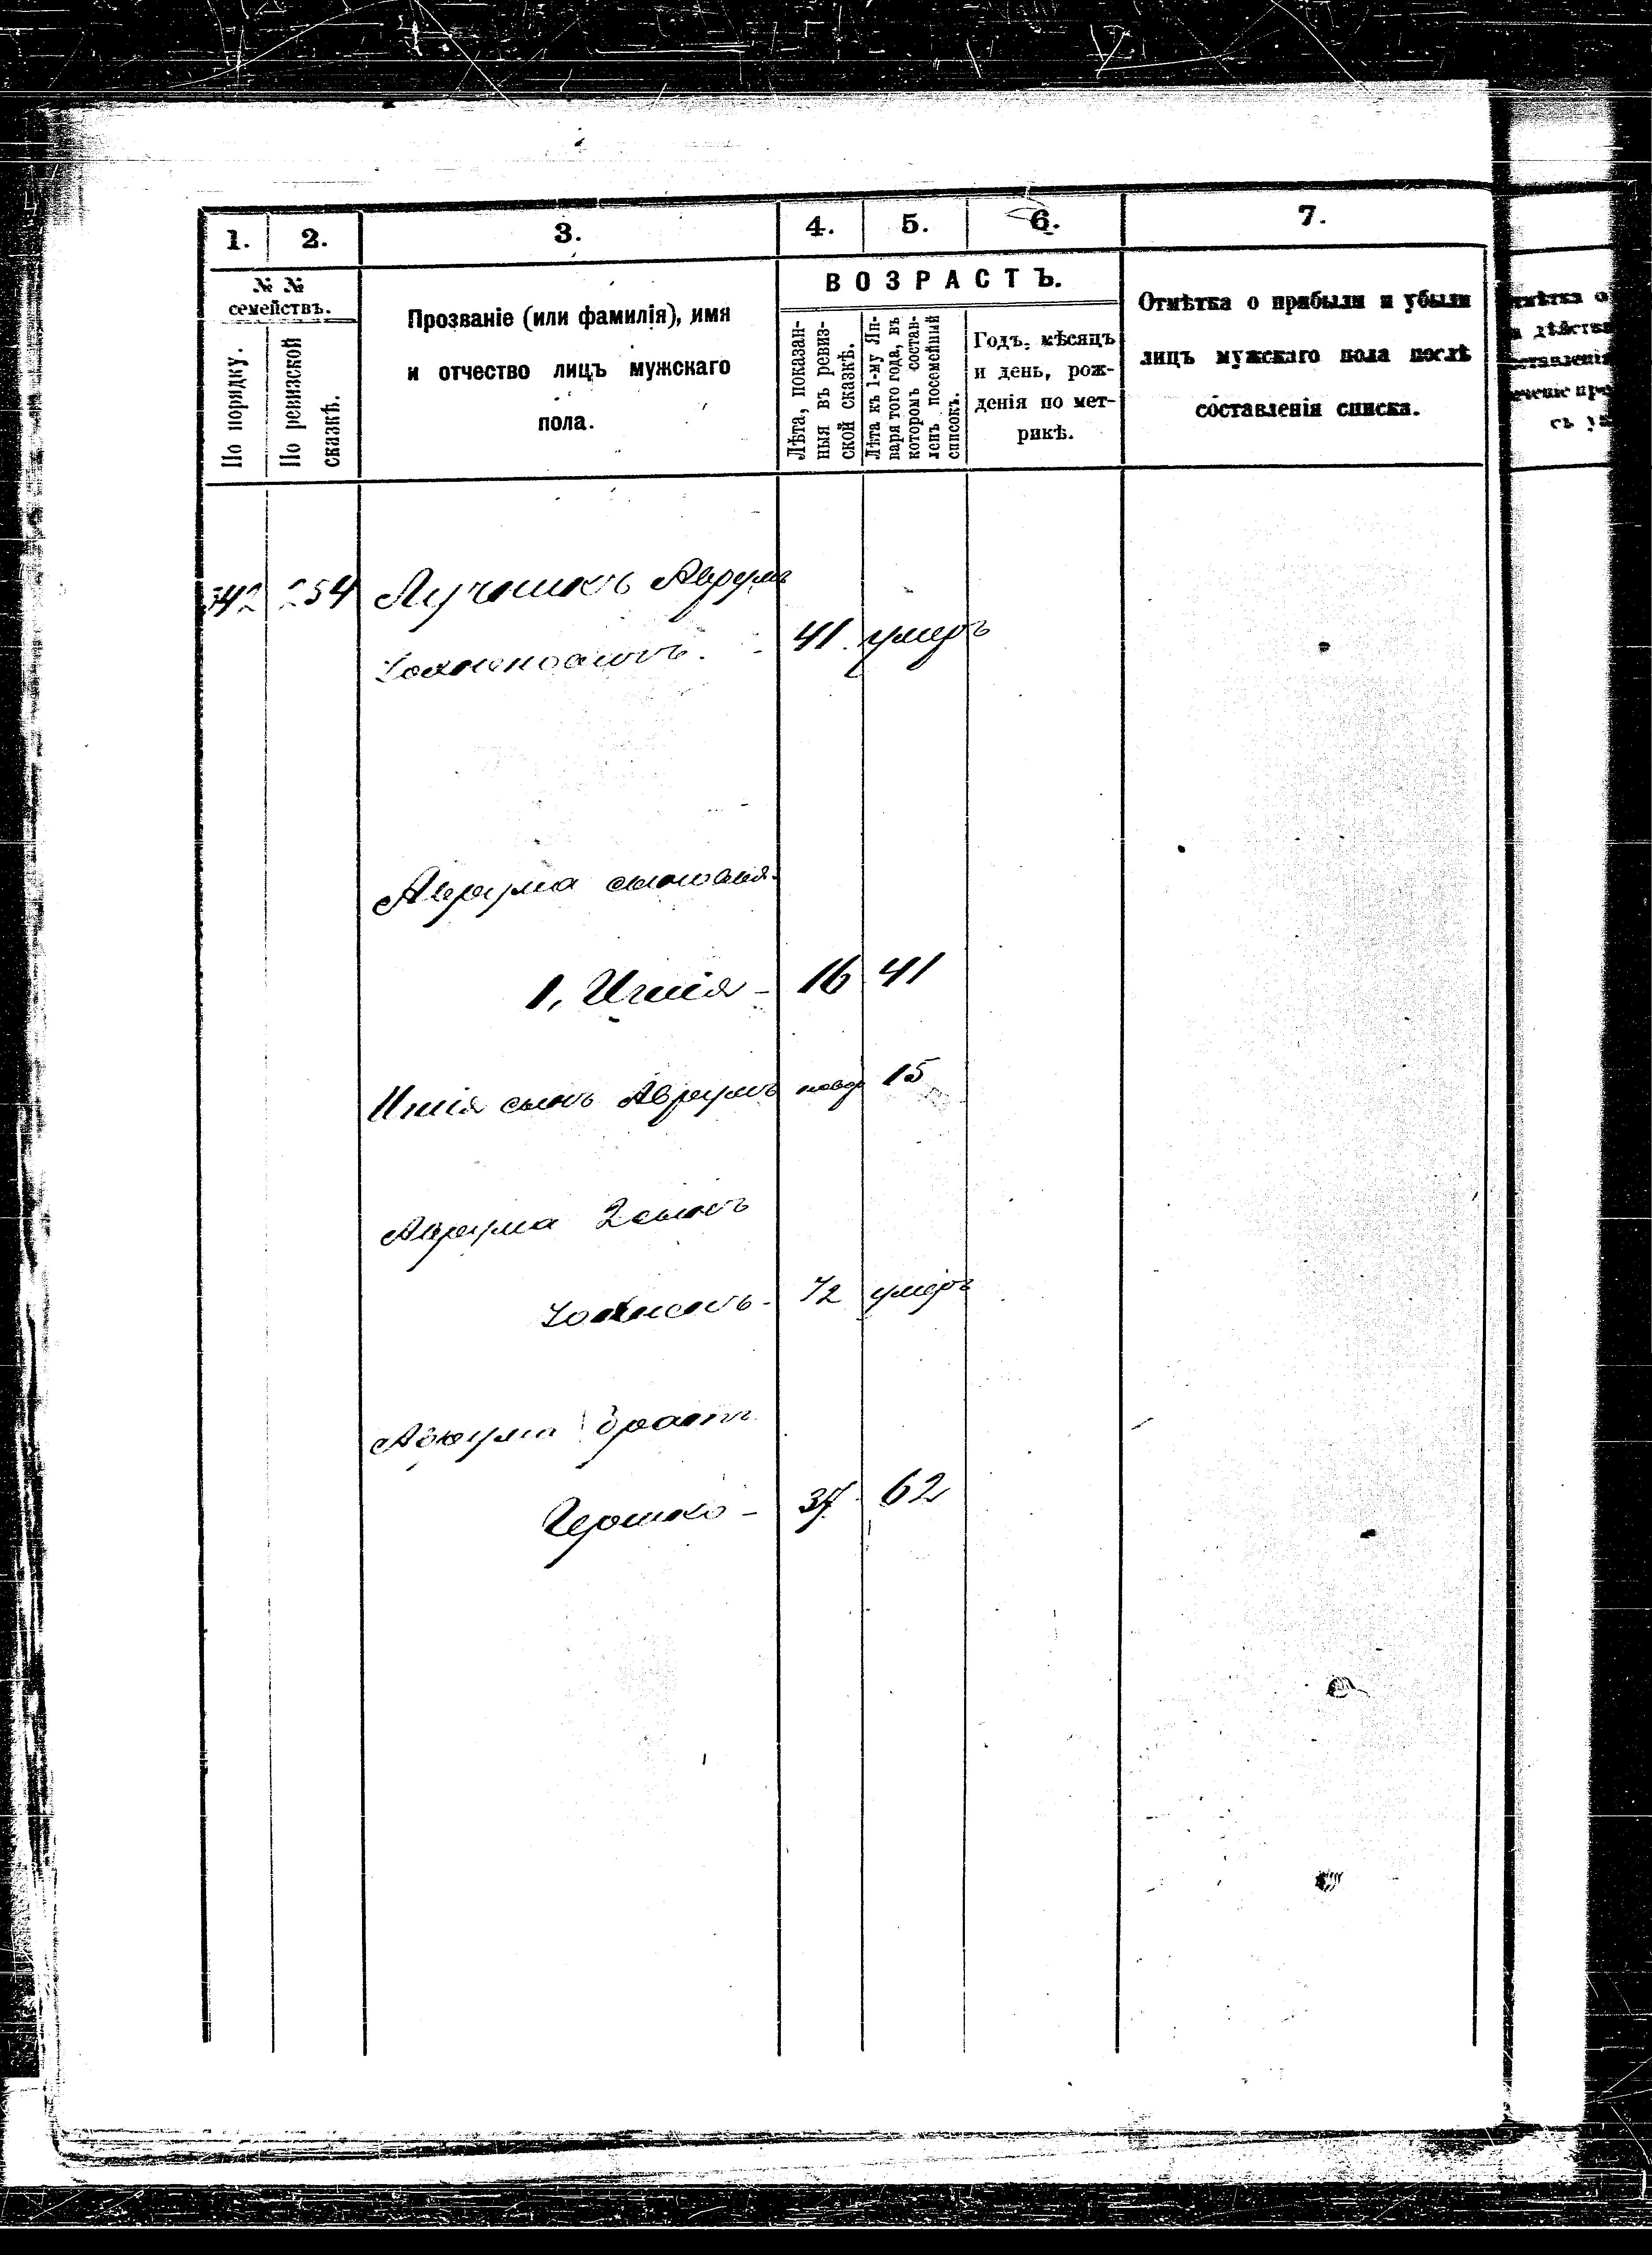 1. 2. 3. 4. 5. 6. 7.
№ №
семействъ.
По порядку.
По ревизской
сказкѣ.
Прозваніе (или фамилія), имя
и отчество лицъ мужскаго
пола.
ВОЗРАСТЪ.
Лѣта, показан-
ныя въ ревиз-
ской сказкѣ.
Лѣта къ 1-му Ян-
варя того года, въ
которомъ состав-
ленъ посемейный
списокъ.
Годъ, мѣсяцъ
и день, рож-
денія по мет-
рикѣ.
Отмѣтка о прибыли и убыли
лицъ мужскаго пола послѣ
составленія списка.
342 254 Аврумъ
41. умеръ
Аврума сыновья.
1, Ицтя - 16 41
сынъ Аврумъ новор 15
Аврума 2 сынъ
1/2 умеръ
Аврума братъ
Гершко - 37. 62